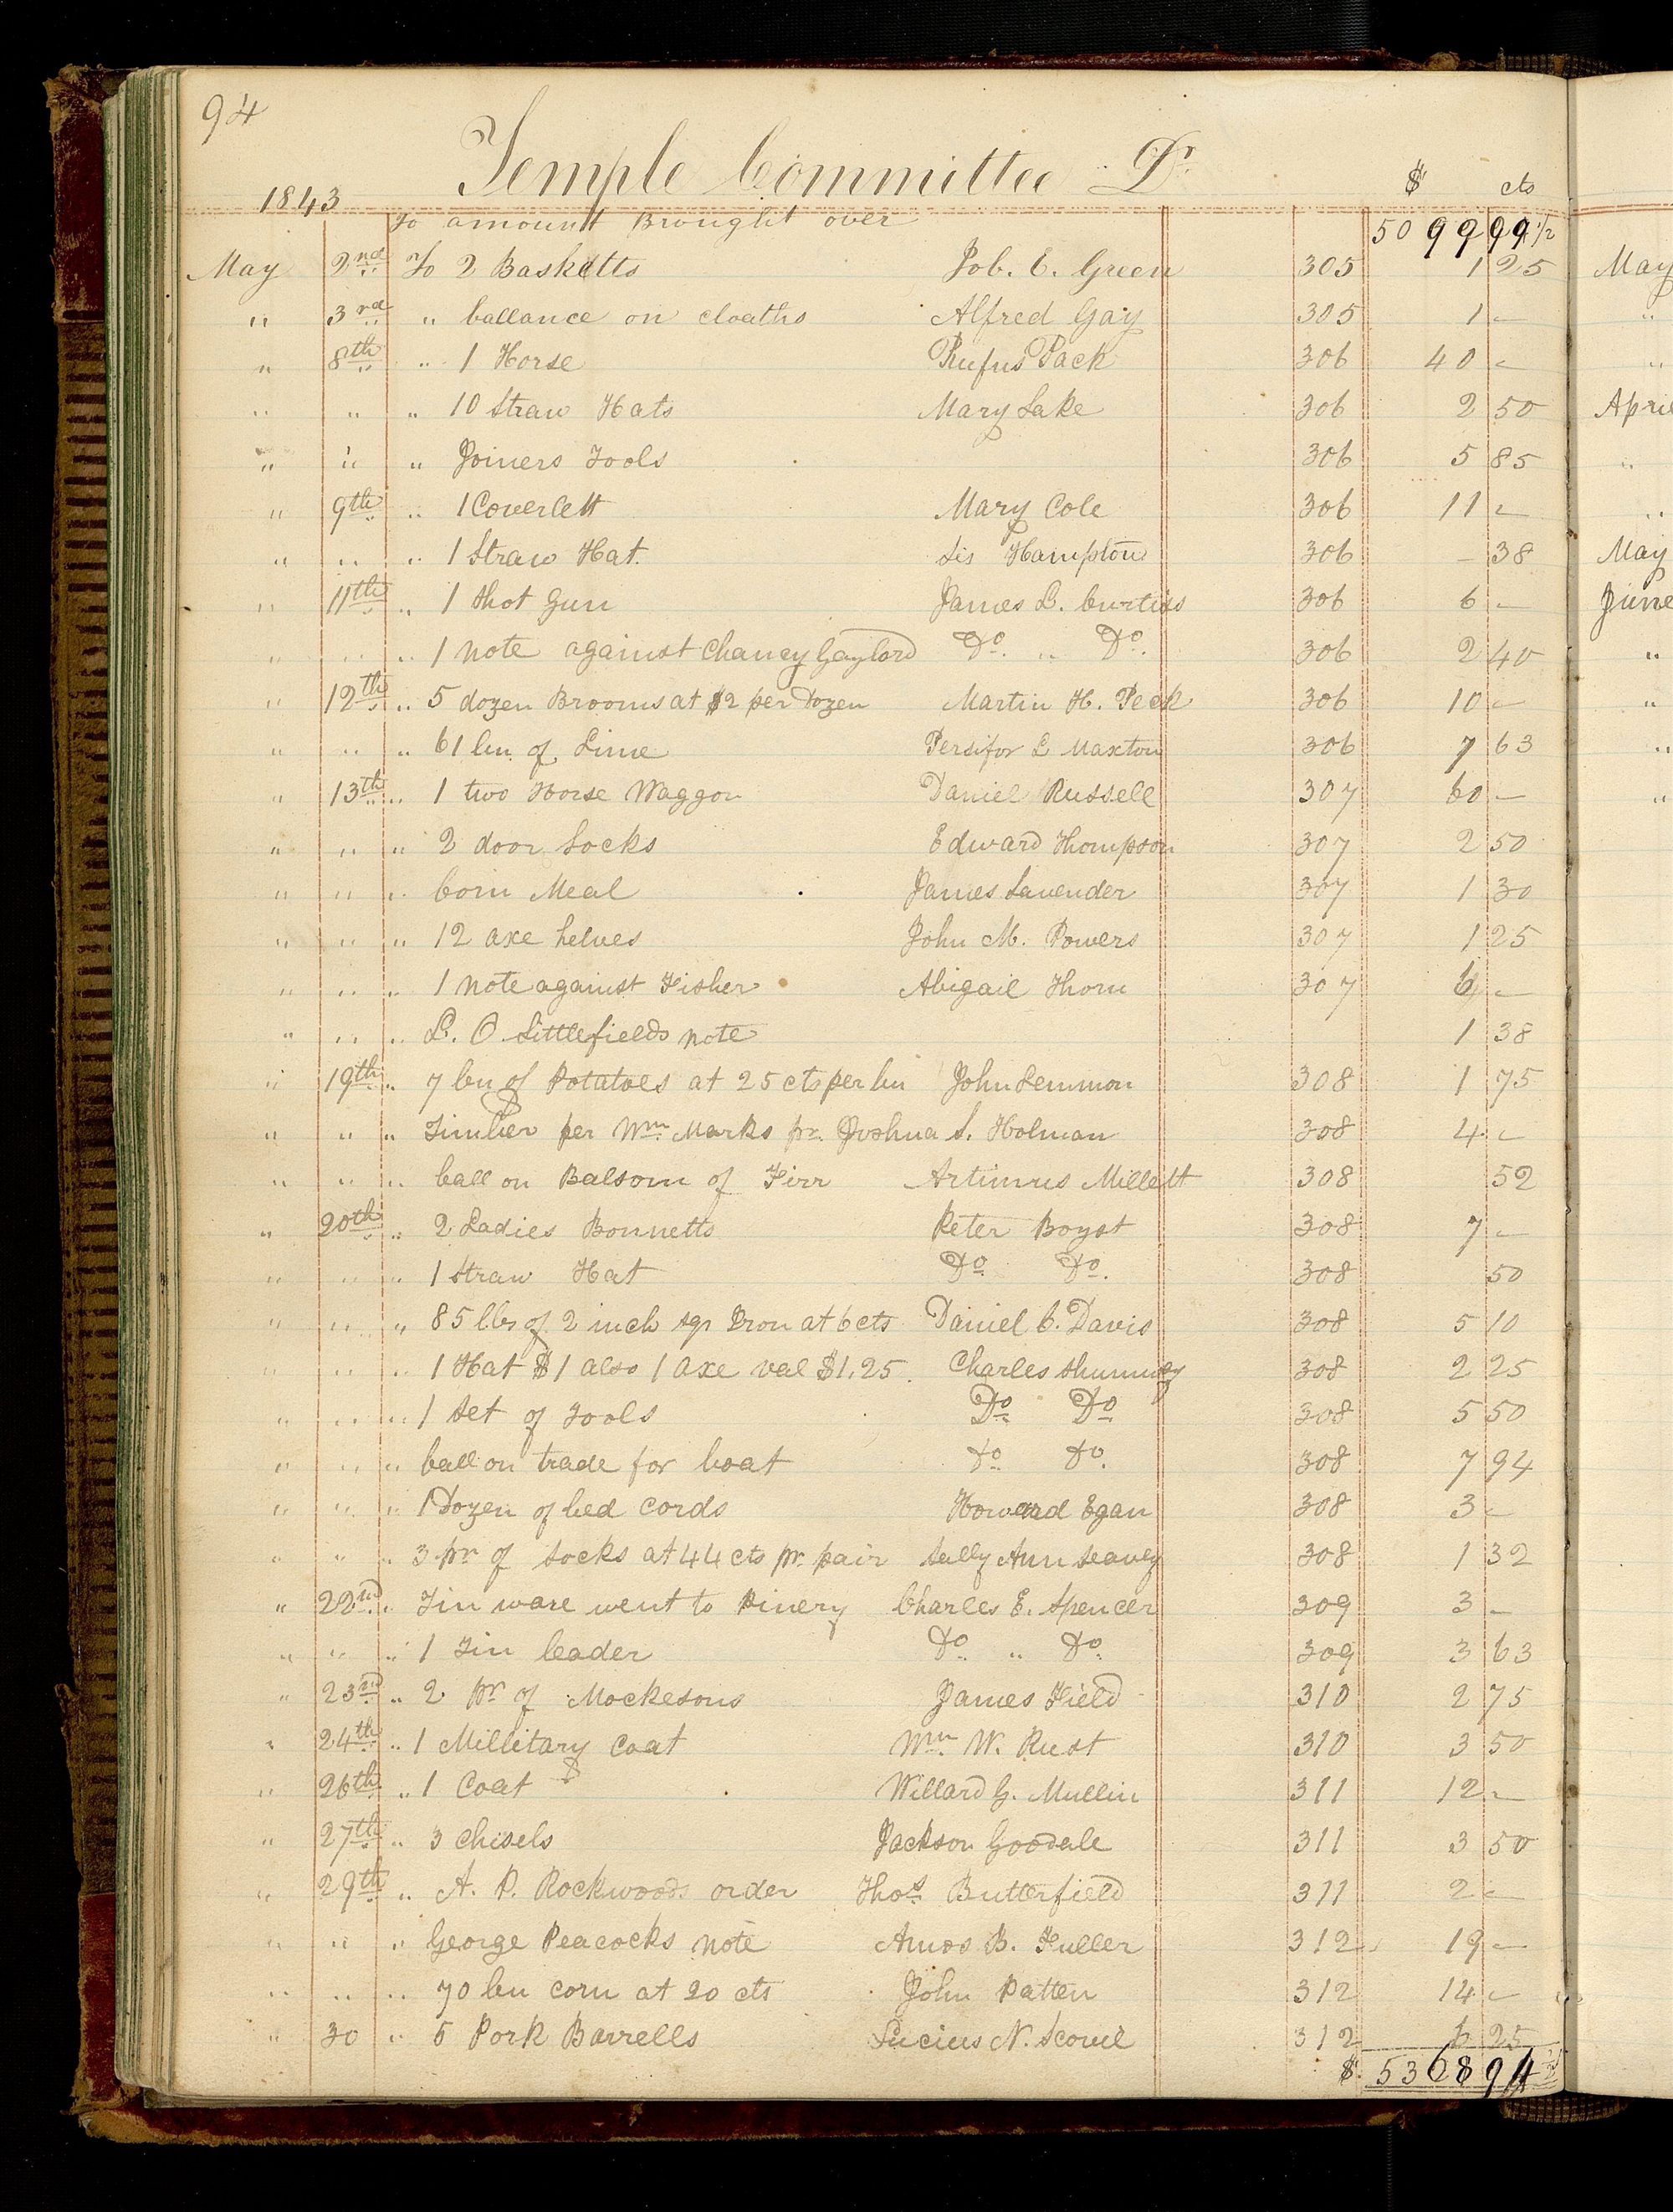 94
Temple Committee Dr.
$ cts
1843
To amount Brought over 5099 99 1/2
May 2nd To 2 Basketts Job. C. Green 305 1 25
" 3rd " ballance on cloaths Alfred Gay 305 1 -
" 8th " 1 Horse Rufus Pack 306 40 -
" " " 10 Straw Hats Mary Lake 306 2 50
" " " Joiners Tools 306 5 85
" 9th " 1 Coverlett Mary Cole 306 11 -
" " " 1 Straw Hat. Sis Hampton 306 - 38
" 11th " 1 Shot Gun James L. Curtiss 306 6 -
" " " 1 note against Chancy Gaylord Do. " Do. 306 2 40
" 12th " 5 dozen Brooms at $2 per Dozen Martin H. Peck 306 10 -
" " " 61 bu. of Lime Persifor L Maxton 306 7 63
" 13th " 1 two Horse Waggon Daniel Russell 307 60 -
" " " 2 door Locks Edward Thompson 307 2 50
" " " Corn Meal James Lavender 307 1 30
" " " 12 axe helves John M. Powers 307 1 25
" " " 1 note against Fisher Abigail Thorn 307 6 -
" " " L. O. Littlefields note 1 38
" 19th " 7 bu of Potatoes at 25 cts per bu John Lemmon 308 1 75
" " " Timber per Wm. Marks pr. Joshua S. Holman 308 4 -
" " " ball on Balsom of Firr Artimus Millett 308 52
" 20th " 2 Ladies Bonnetts Peter Boyst 308 7 -
" " " 1 Straw Hat Do. Do. 308 50
" " " 85 lbs of 2 inch sqr Iron at 6 cts Daniel C. Davis 308 5 10
" " " 1 Hat $1 also 1 axe val $1.25. Charles Shumway 308 2 25
" " " 1 Set of Tools Do Do 308 5 50
" " " ball on trade for boat Do Do. 308 7 94
" " " 1 Dozen of bed cords Howard Egan 308 3 -
" " " 3 pr of Socks at 44 cts pr. pair Sally Ann Seavey 308 1 32
" 22nd " Tin ware went to Pinery Charles E. Spencer 309 3 -
" " " 1 Tin leader Do. " Do. 309 3 63
" 23rd " 2 pr of Mockesons James Field 310 2 75
" 24th " 1 Millitary Coat Wm W. Rust 310 3 50
" 26th " 1 Coat $ Willard G. Mullin 311 12 -
" 27th " 3 Chisels Jackson Goodale 311 3 50
" 29th " A. P. Rockwoods order Thos. Butterfield 311 2 -
" " " George Peacocks note Amos B. Fuller 312 19 -
" " " 70 bu corn at 20 cts John Patten 312 14 -
" 30 " 5 Pork Barrells Lucius N. Scovil 312 6 25
$ 5368 94
May
"
"
April
"
"
May
June
"
"
"
"